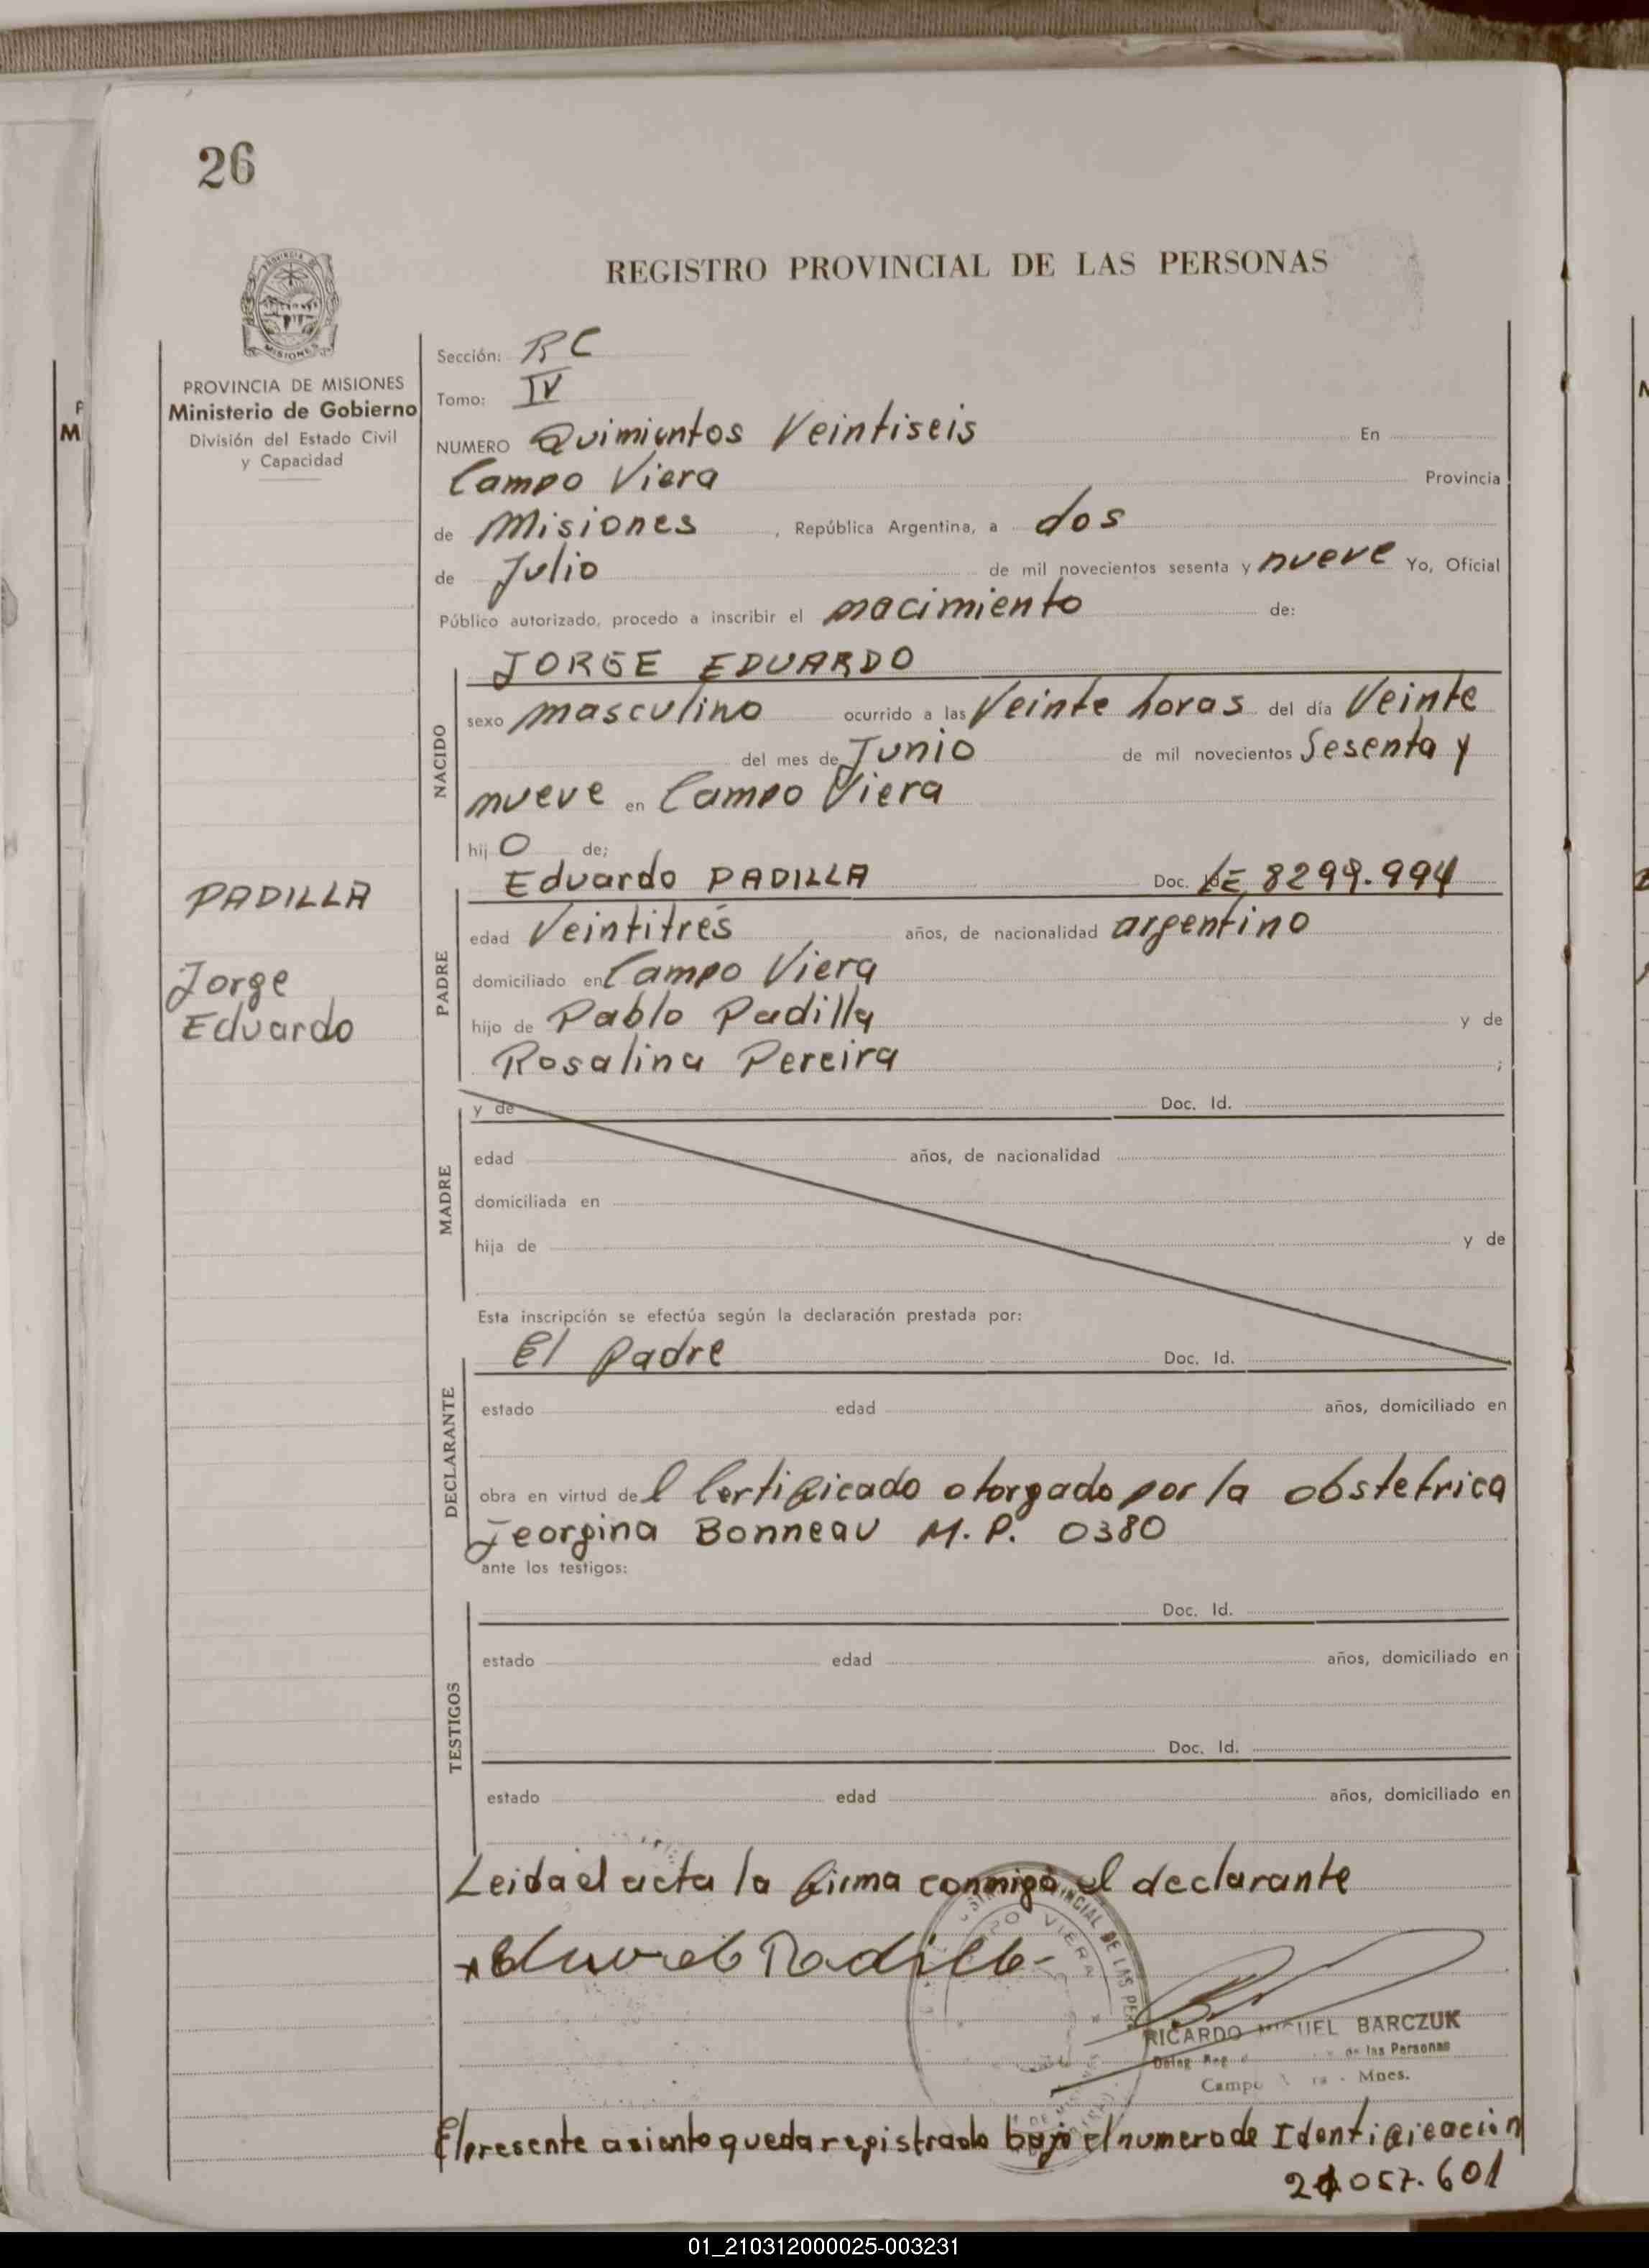 26
REGISTRO PROVINCIAL DE LAS PERSONAS
MISIONES
PROVINCIA DE MISIONES
Ministerio de Gobierno
División del Estado Civil
y Capacidad
Sección: RC
Tomo: IV
NUMERO Quimientos Veintiseis En
Campo Viera Provincia
de Misiones, República Argentina, a dos
de Julio de mil novecientos sesenta y nueve Yo, Oficial
Público autorizado, procedo a inscribir el nacimiento de:
NACIDO
JORGE EDUARDO
sexo masculino ocurrido a las Veinte horas del día Veinte
del mes de Junio de mil novecientos Sesenta y
nueve en Campo Viera
hijo de;
PADILLA
Jorge
Eduardo
PADRE
Eduardo PADILLA Doc. LE 8299.994
edad Veintitrés años, de nacionalidad argentino
domiciliado en Campo Viera
hijo de Pablo Padilla y de
Rosalina Pereira ;
MADRE
y de Doc. Id.
edad años, de nacionalidad
domiciliada en
hija de y de
Esta inscripción se efectúa según la declaración prestada por:
DECLARANTE
El padre Doc. Id.
estado edad años, domiciliado en
obra en virtud del Certificado otorgado por la obstetrica
Jeorgina Bonneau M.P. 0380
ante los testigos:
TESTIGOS
Doc. Id.
estado edad años, domiciliado en
Doc. Id.
estado edad años, domiciliado en
Leida el acta la firma conmigo el declarante
Eduardo Padilla
VIERA
RICARDO MIGUEL BARCZUK
de las Personas
Campo - Mnes.
El presente asiento queda registrado bajo el numero de Identificación
21.057.601
01_210312000025-003231